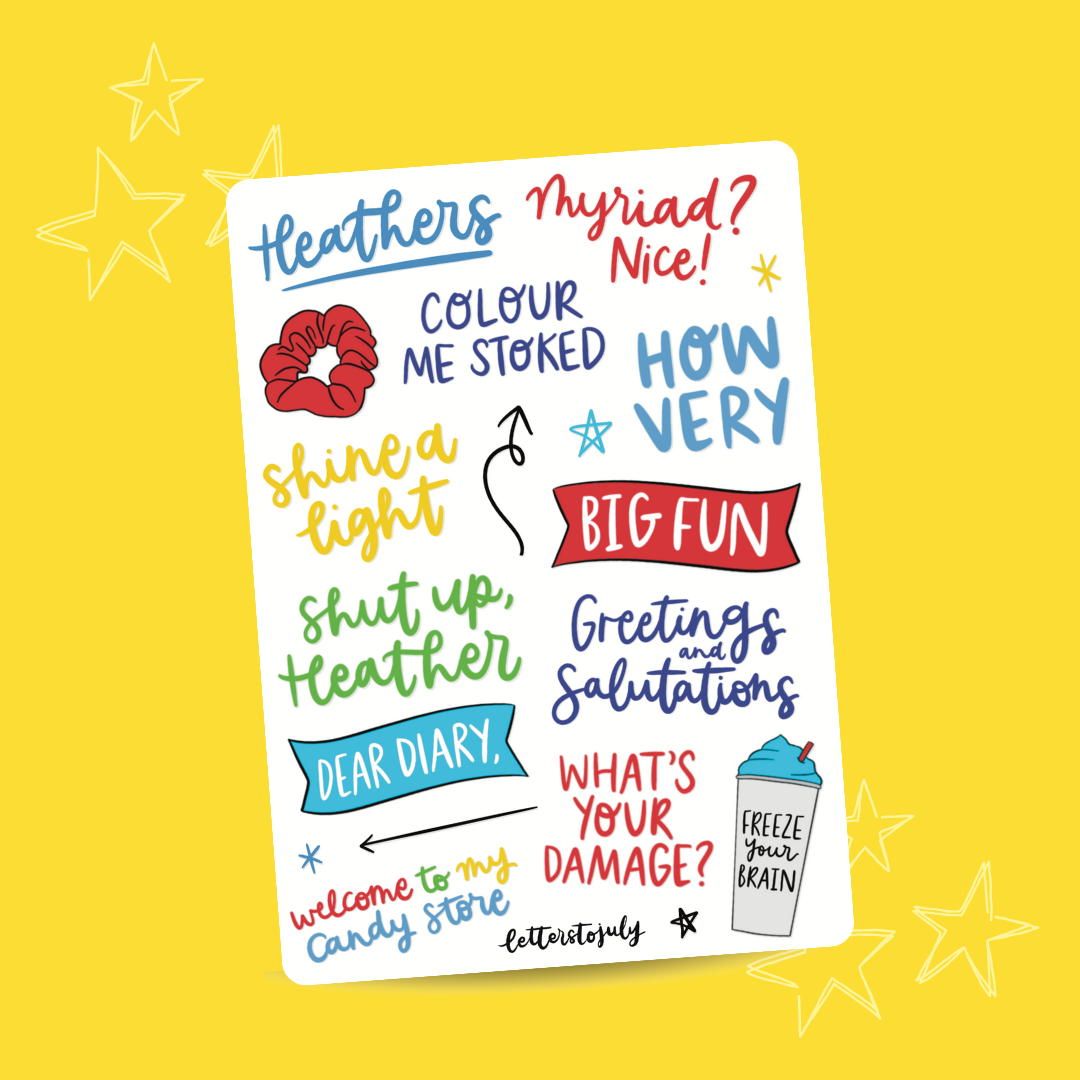 Heathers
Myriad?
Nice!
COLOUR
ME STOKED
HOW
VERY
shine a
light
BIG FUN
Shut up,
Heather
Greetings
and
Salutations
DEAR DIARY,
WHAT'S
YOUR
DAMAGE?
FREEZE
your
BRAIN
welcome to my
Candy Store
letterstojuly